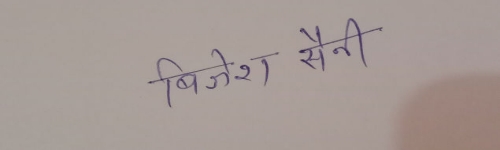 बिजेश सैनी